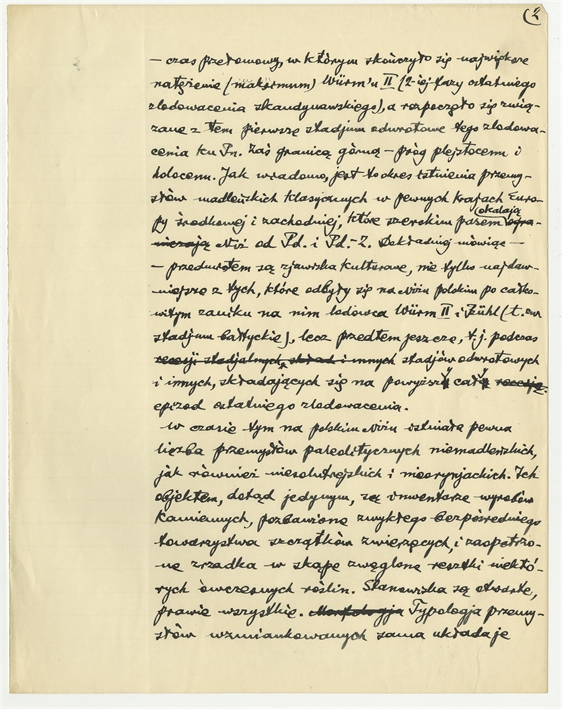 (2
— czas przełomowy, w którym skończyło się największe
natężenie (maksimum) Würm'u II (2-iej fazy ostatniego
zlodowacenia skandynawskiego), a rozpoczęło się zwią-
zane z tem pierwsze stadjum odwrotowe tego zlodowa-
cenia ku Pn. Zaś granicą górną — próg plejstocenu i
holocenu. Jak wiadomo, jest to okres istnienia przemy-
słów madleńskich klasycznych w pewnych krajach Euro-
py środkowej i zachodniej, które szerokim pasem okalają ogra-
niczają Niż od Pd. i Pd.-Z. Dokładniej mówiąc —
— przedmiotem są zjawiska kulturowe, nie tylko najdaw-
niejsze z tych, które odbyły się na Niżu polskim po całko-
witym zaniku na nim lodowca Würm II i Bühl (t. zw.
stadjum bałtyckie), lecz przedtem jeszcze, t.j. podczas
recesji stadjalnych, i innych stadjów odwrotowych
i innych, składających się na powyższy cały recesję
epizod ostatniego zlodowacenia.
W czasie tym na polskim Niżu istniała pewna
liczba przemysłów paleolitycznych niemadleńskich,
jak również niesolutrejskich i nieorynjackich. Ich
objektem, dotąd jedynym, są inwentarze wyrobów
kamiennych, pozbawione zwykłego bezpośredniego
towarzystwa szczątków zwierzęcych, i zaopatrzo-
ne zrzadka w skąpe zwęglone resztki niektó-
rych ówczesnych roślin. Stanowiska są otwarte,
prawie wszystkie. Morfologja Typologja przemy-
słów wzmiankowanych sama układaje